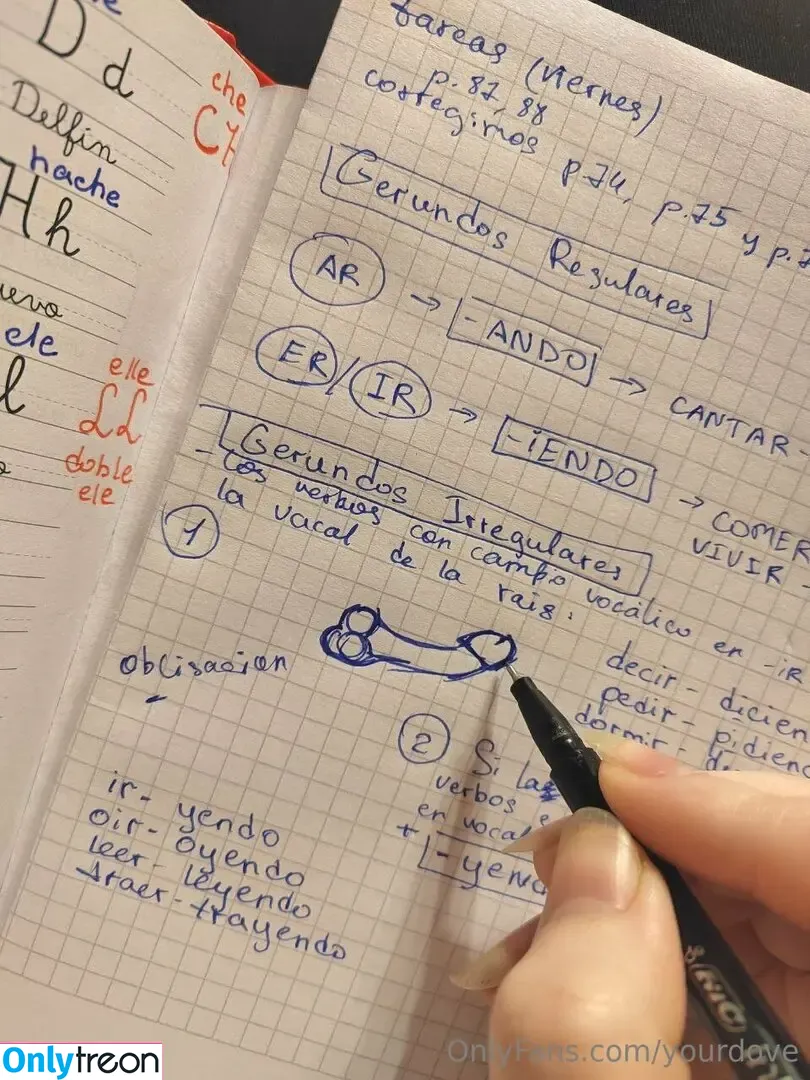 D d
Delfin
hache
Hh
uevo
ele
l
che
CH
elle
LL
doble
ele
tareas (viernes)
p. 87, 88
corregimos p.74, p.75 y p.7
Gerundos Regulares
AR → -ANDO → CANTAR-
ER/IR → -iENDO → COMER
VIVIR
Gerundos Irregulares
- Los verbos con campo vocálico en -iR
1
la vacal de la rais:
obligacion
decir - dicien
pedir - pidienc
dormir - d
2 Si las
verbos e
en vocal
+ -yend
ir- yendo
oir- oyendo
leer- leyendo
traer- trayendo
BIC
OnlyFans.com/yourdove
Onlytreon